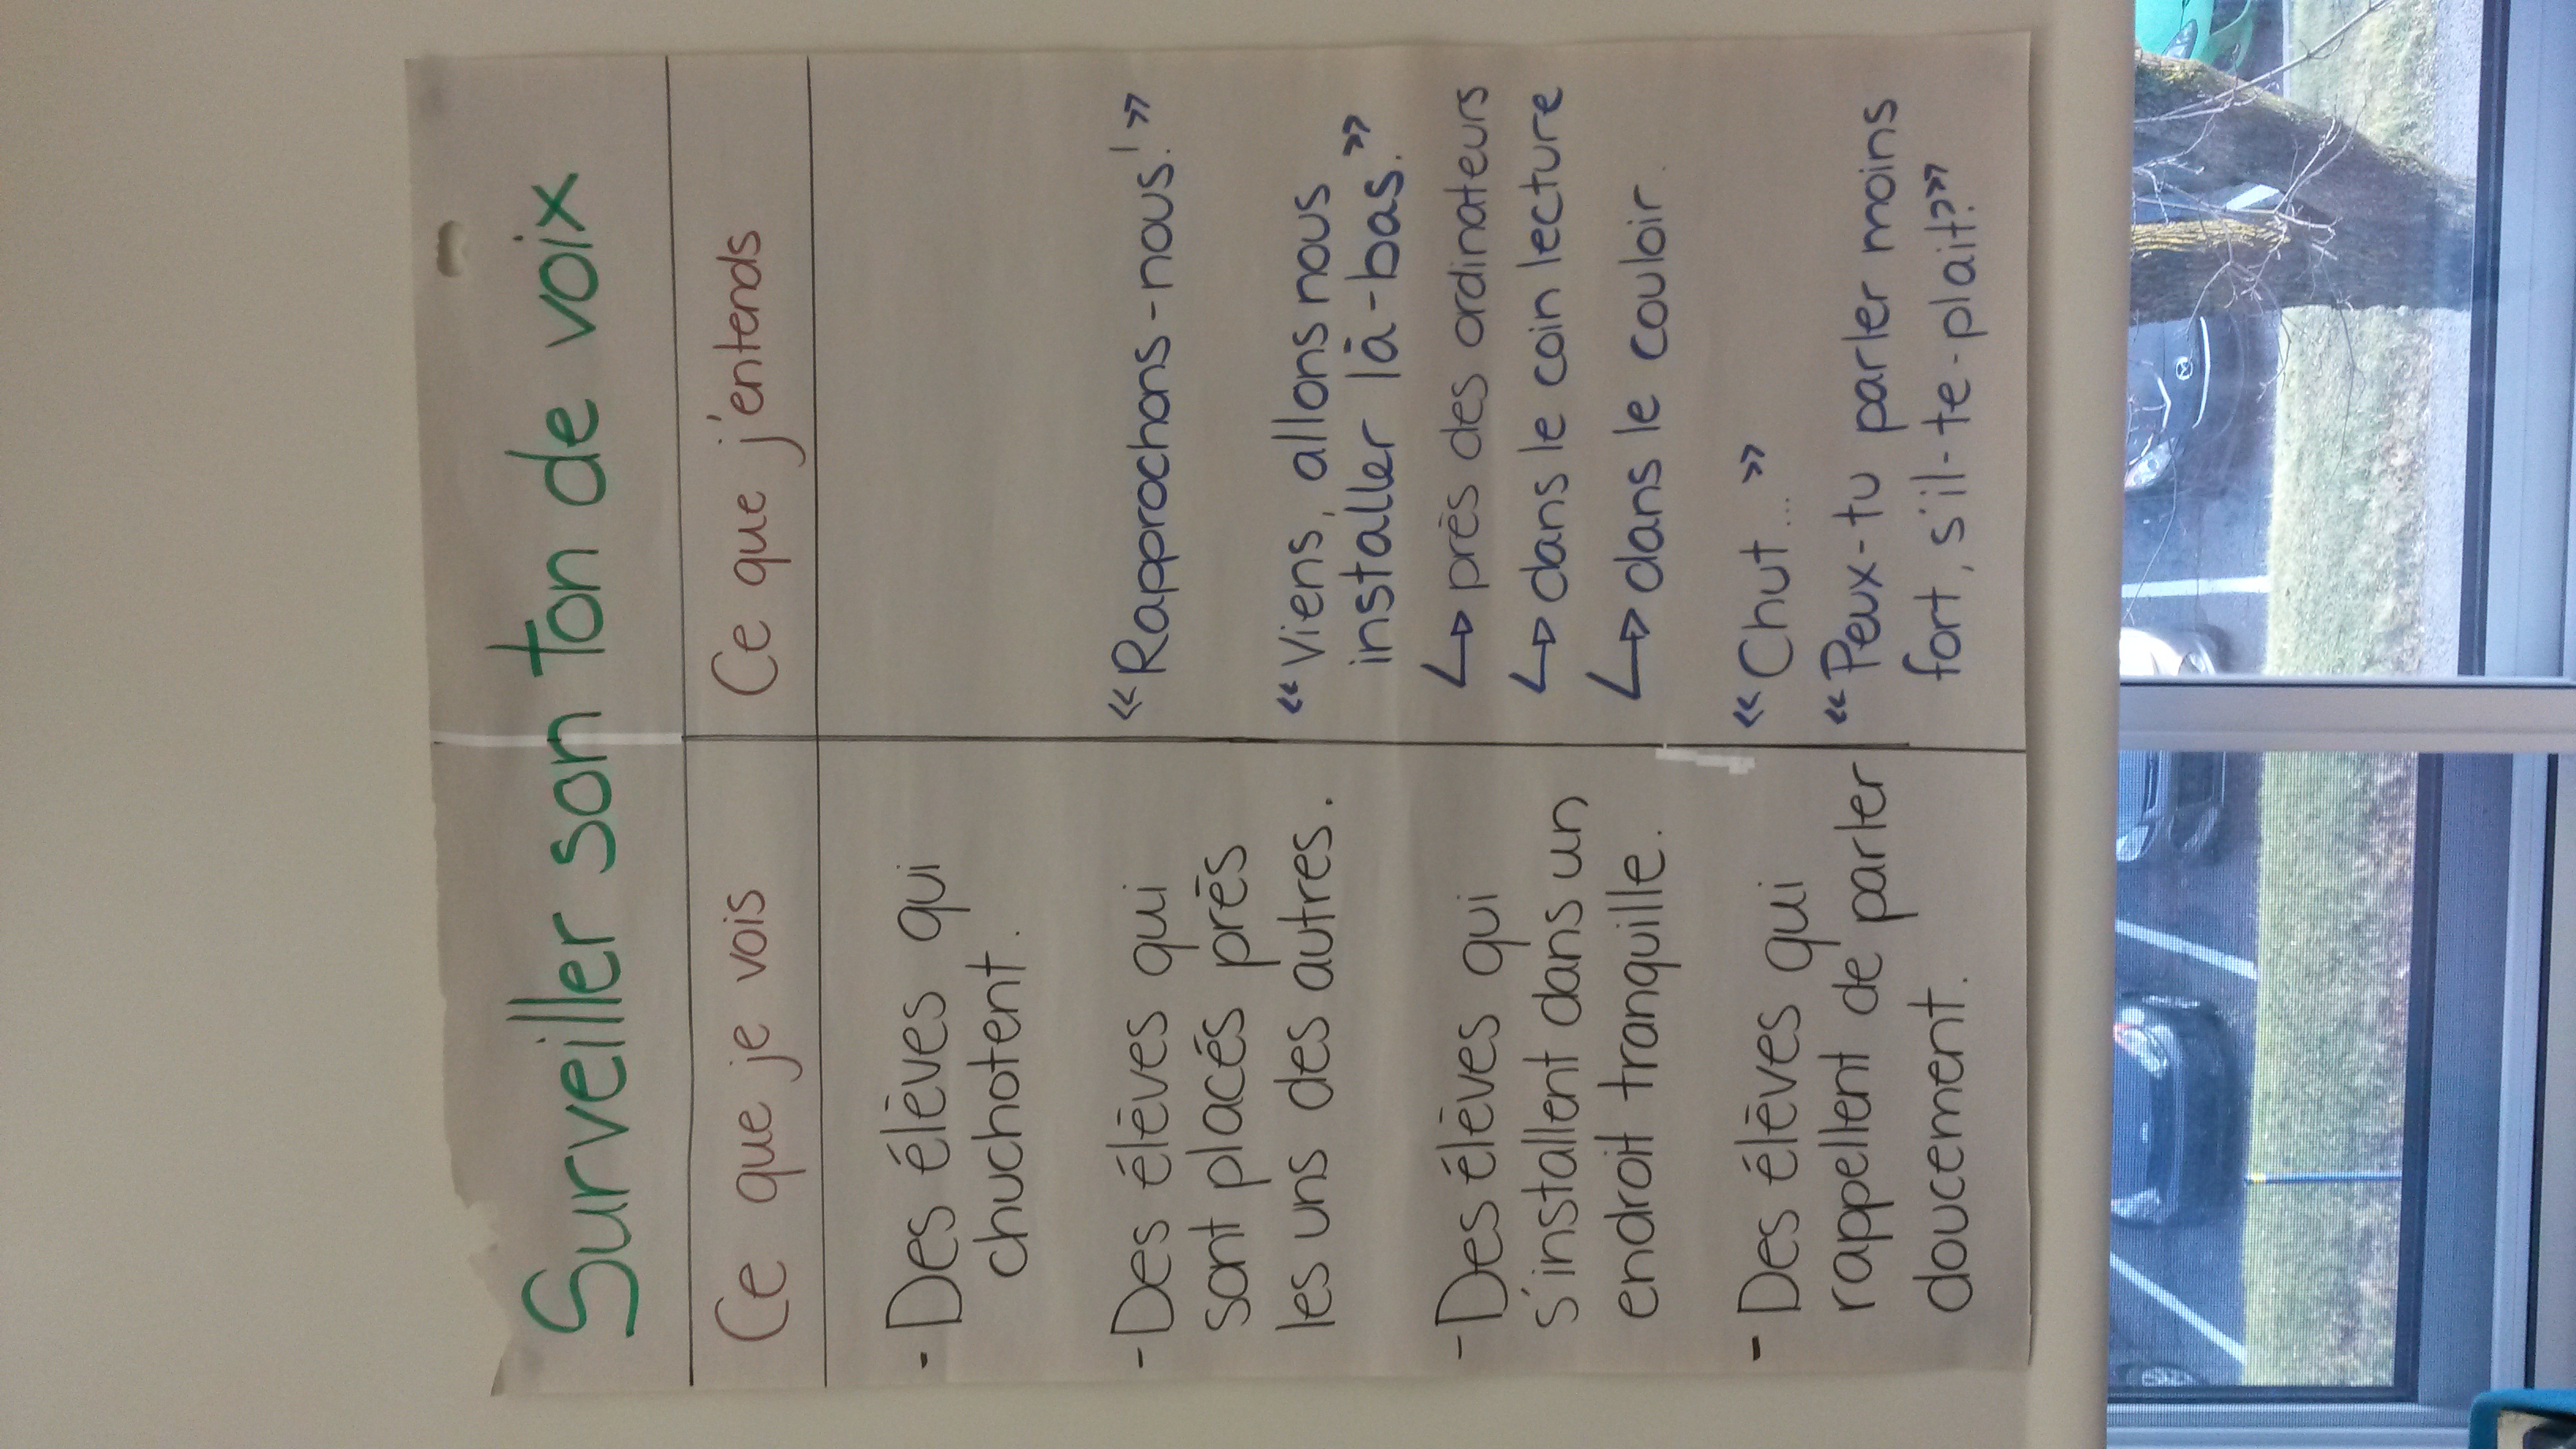 Surveiller son ton de voix
Ce que je vois
Ce que j'entends
- Des élèves qui
chuchotent.
- Des élèves qui
sont placés près
les uns des autres.
« Rapprochons-nous! »
- Des élèves qui
s'installent dans un
endroit tranquille.
« Viens, allons nous
installer là-bas. »
↳ près des ordinateurs
↳ dans le coin lecture
↳ dans le couloir.
- Des élèves qui
rappellent de parler
doucement.
« Chut... »
« Peux-tu parler moins
fort, s'il-te-plait? »